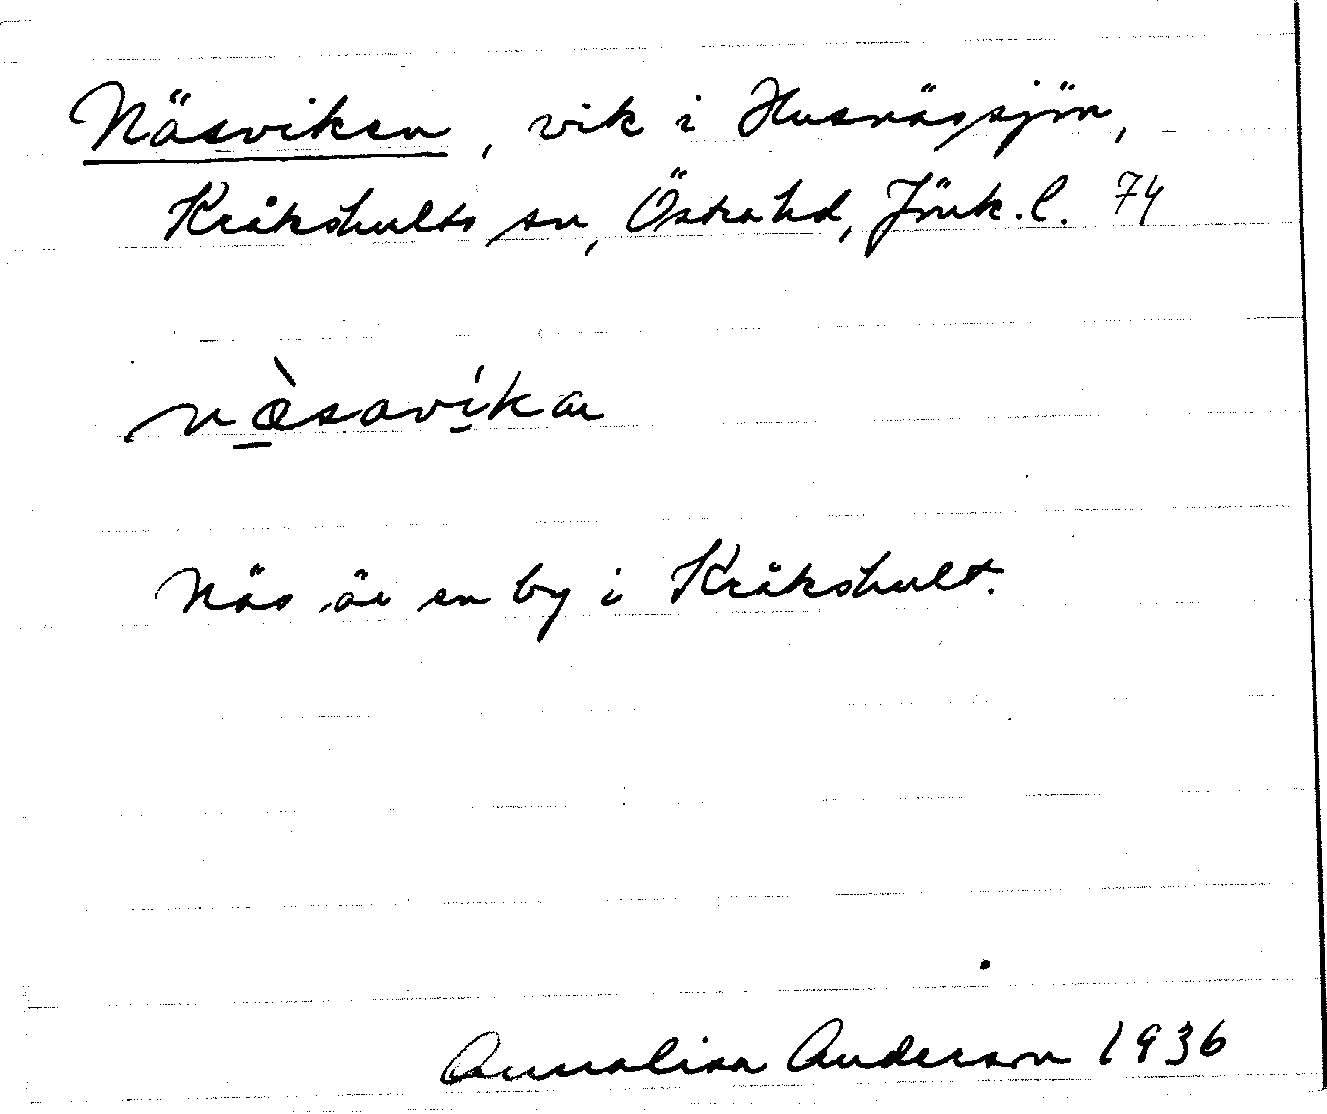 Näsviken, vik i Husnässjön,
Kråkshults sn, Östra hd, Jönk. l. 74
næ̀savíkar
Näs är en by i Kråkshult.
Annalisa Anderson 1936